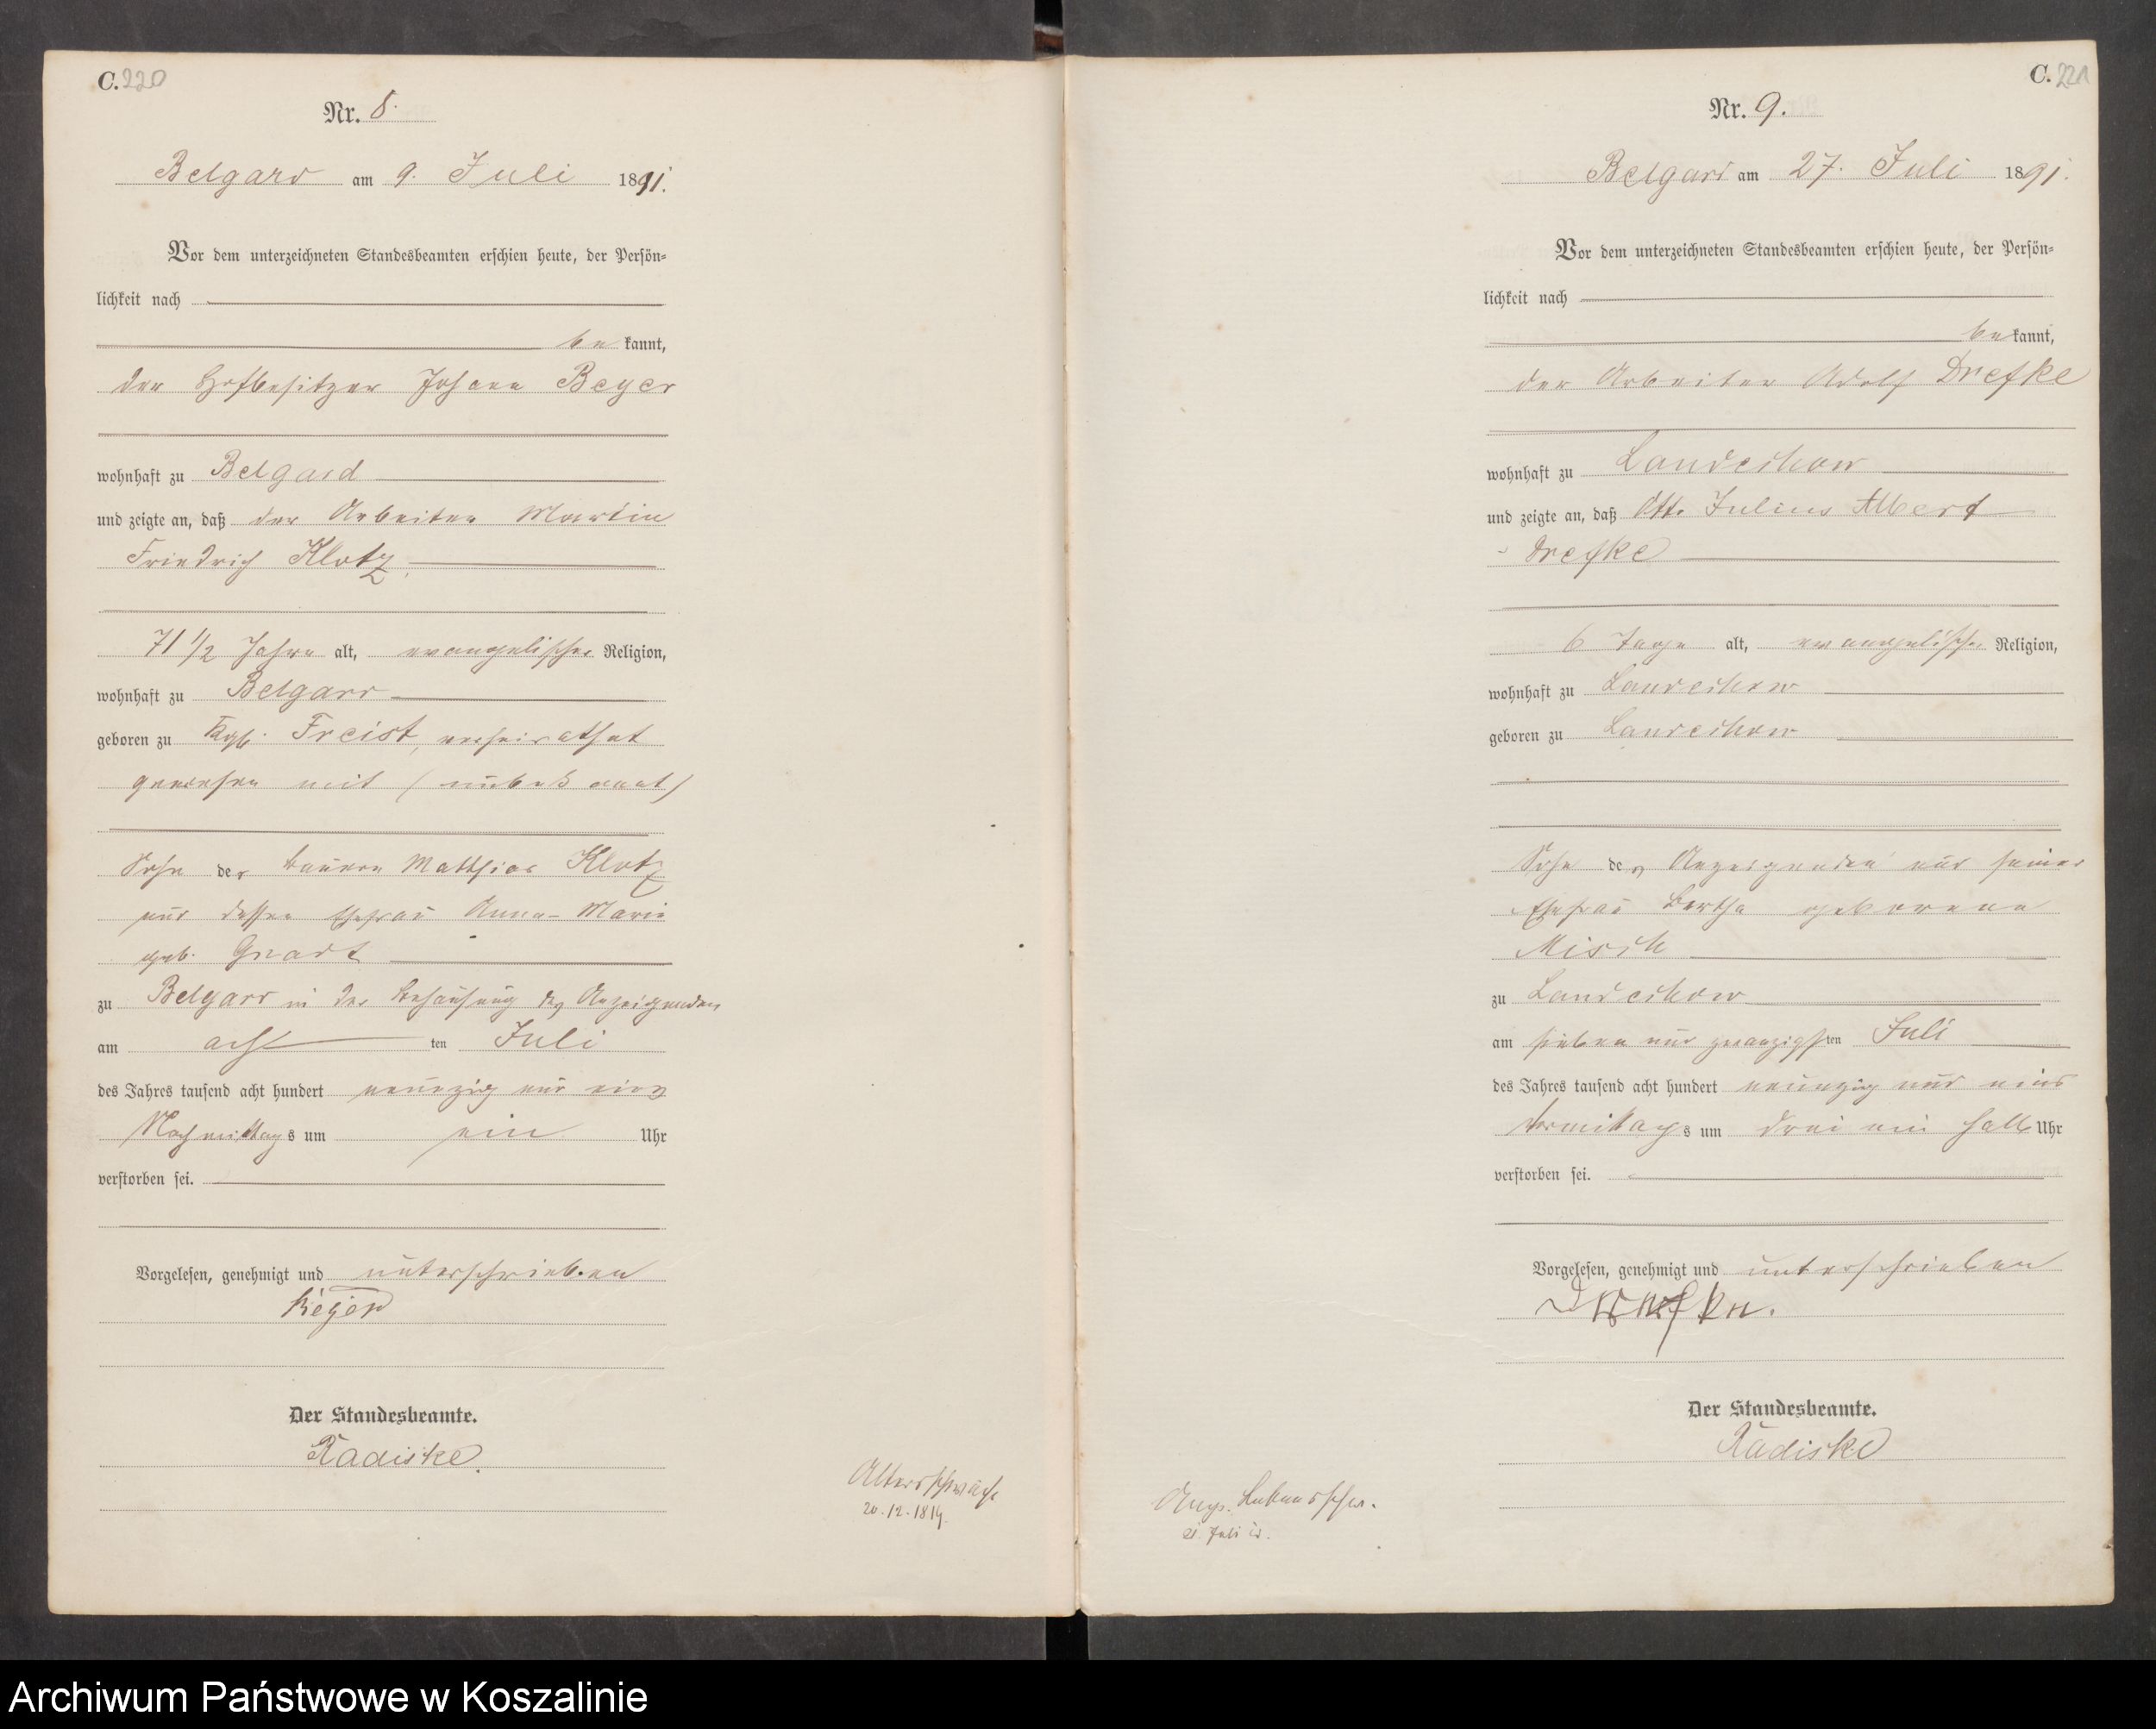 C. 220
Nr. 8.
Belgard am 9. Juli 1891.
Vor dem unterzeichneten Standesbeamten erschien heute, der Persön-
lichkeit nach
bekannt,
der Hofbesitzer Johann Beyer
wohnhaft zu Belgard
und zeigte an, daß der Arbeiter Martin
Friedrich Klotz,
71 1/2 Jahre alt, evangelischer Religion,
wohnhaft zu Belgard
geboren zu Kgl. Freist, verheirathet
gewesen mit (unbekannt)
Sohn des Bauern Matthias Klotz
und dessen Ehefrau Anna-Marie
geb. Gnadt
zu Belgard in der Behausung des Anzeigenden
am acht ten Juli
des Jahres tausend acht hundert neunzig und eins
Nachmittags um ein Uhr
verstorben sei.
Vorgelesen, genehmigt und unterschrieben
Beyer
Der Standesbeamte.
Radiske.
Altersschwäche
20.12.1819.
C. 221
Nr. 9.
Belgard am 27. Juli 1891.
Vor dem unterzeichneten Standesbeamten erschien heute, der Persön-
lichkeit nach
bekannt,
der Arbeiter Adolf Drefke
wohnhaft zu Landechow
und zeigte an, daß Otto Julius Albert
Drefke
6 Tage alt, evangelischer Religion,
wohnhaft zu Landechow
geboren zu Landechow
Sohn des Anzeigenden und seiner
Ehefrau Bertha geborene
Misch
zu Landechow
am sieben und zwanzigsten Juli
des Jahres tausend acht hundert neunzig und eins
Vormittags um drei ein halb Uhr
verstorben sei.
Vorgelesen, genehmigt und unterschrieben
Drefke.
Der Standesbeamte.
Radiske
Ang. Lebensschw.
21. Juli
Archiwum Państwowe w Koszalinie